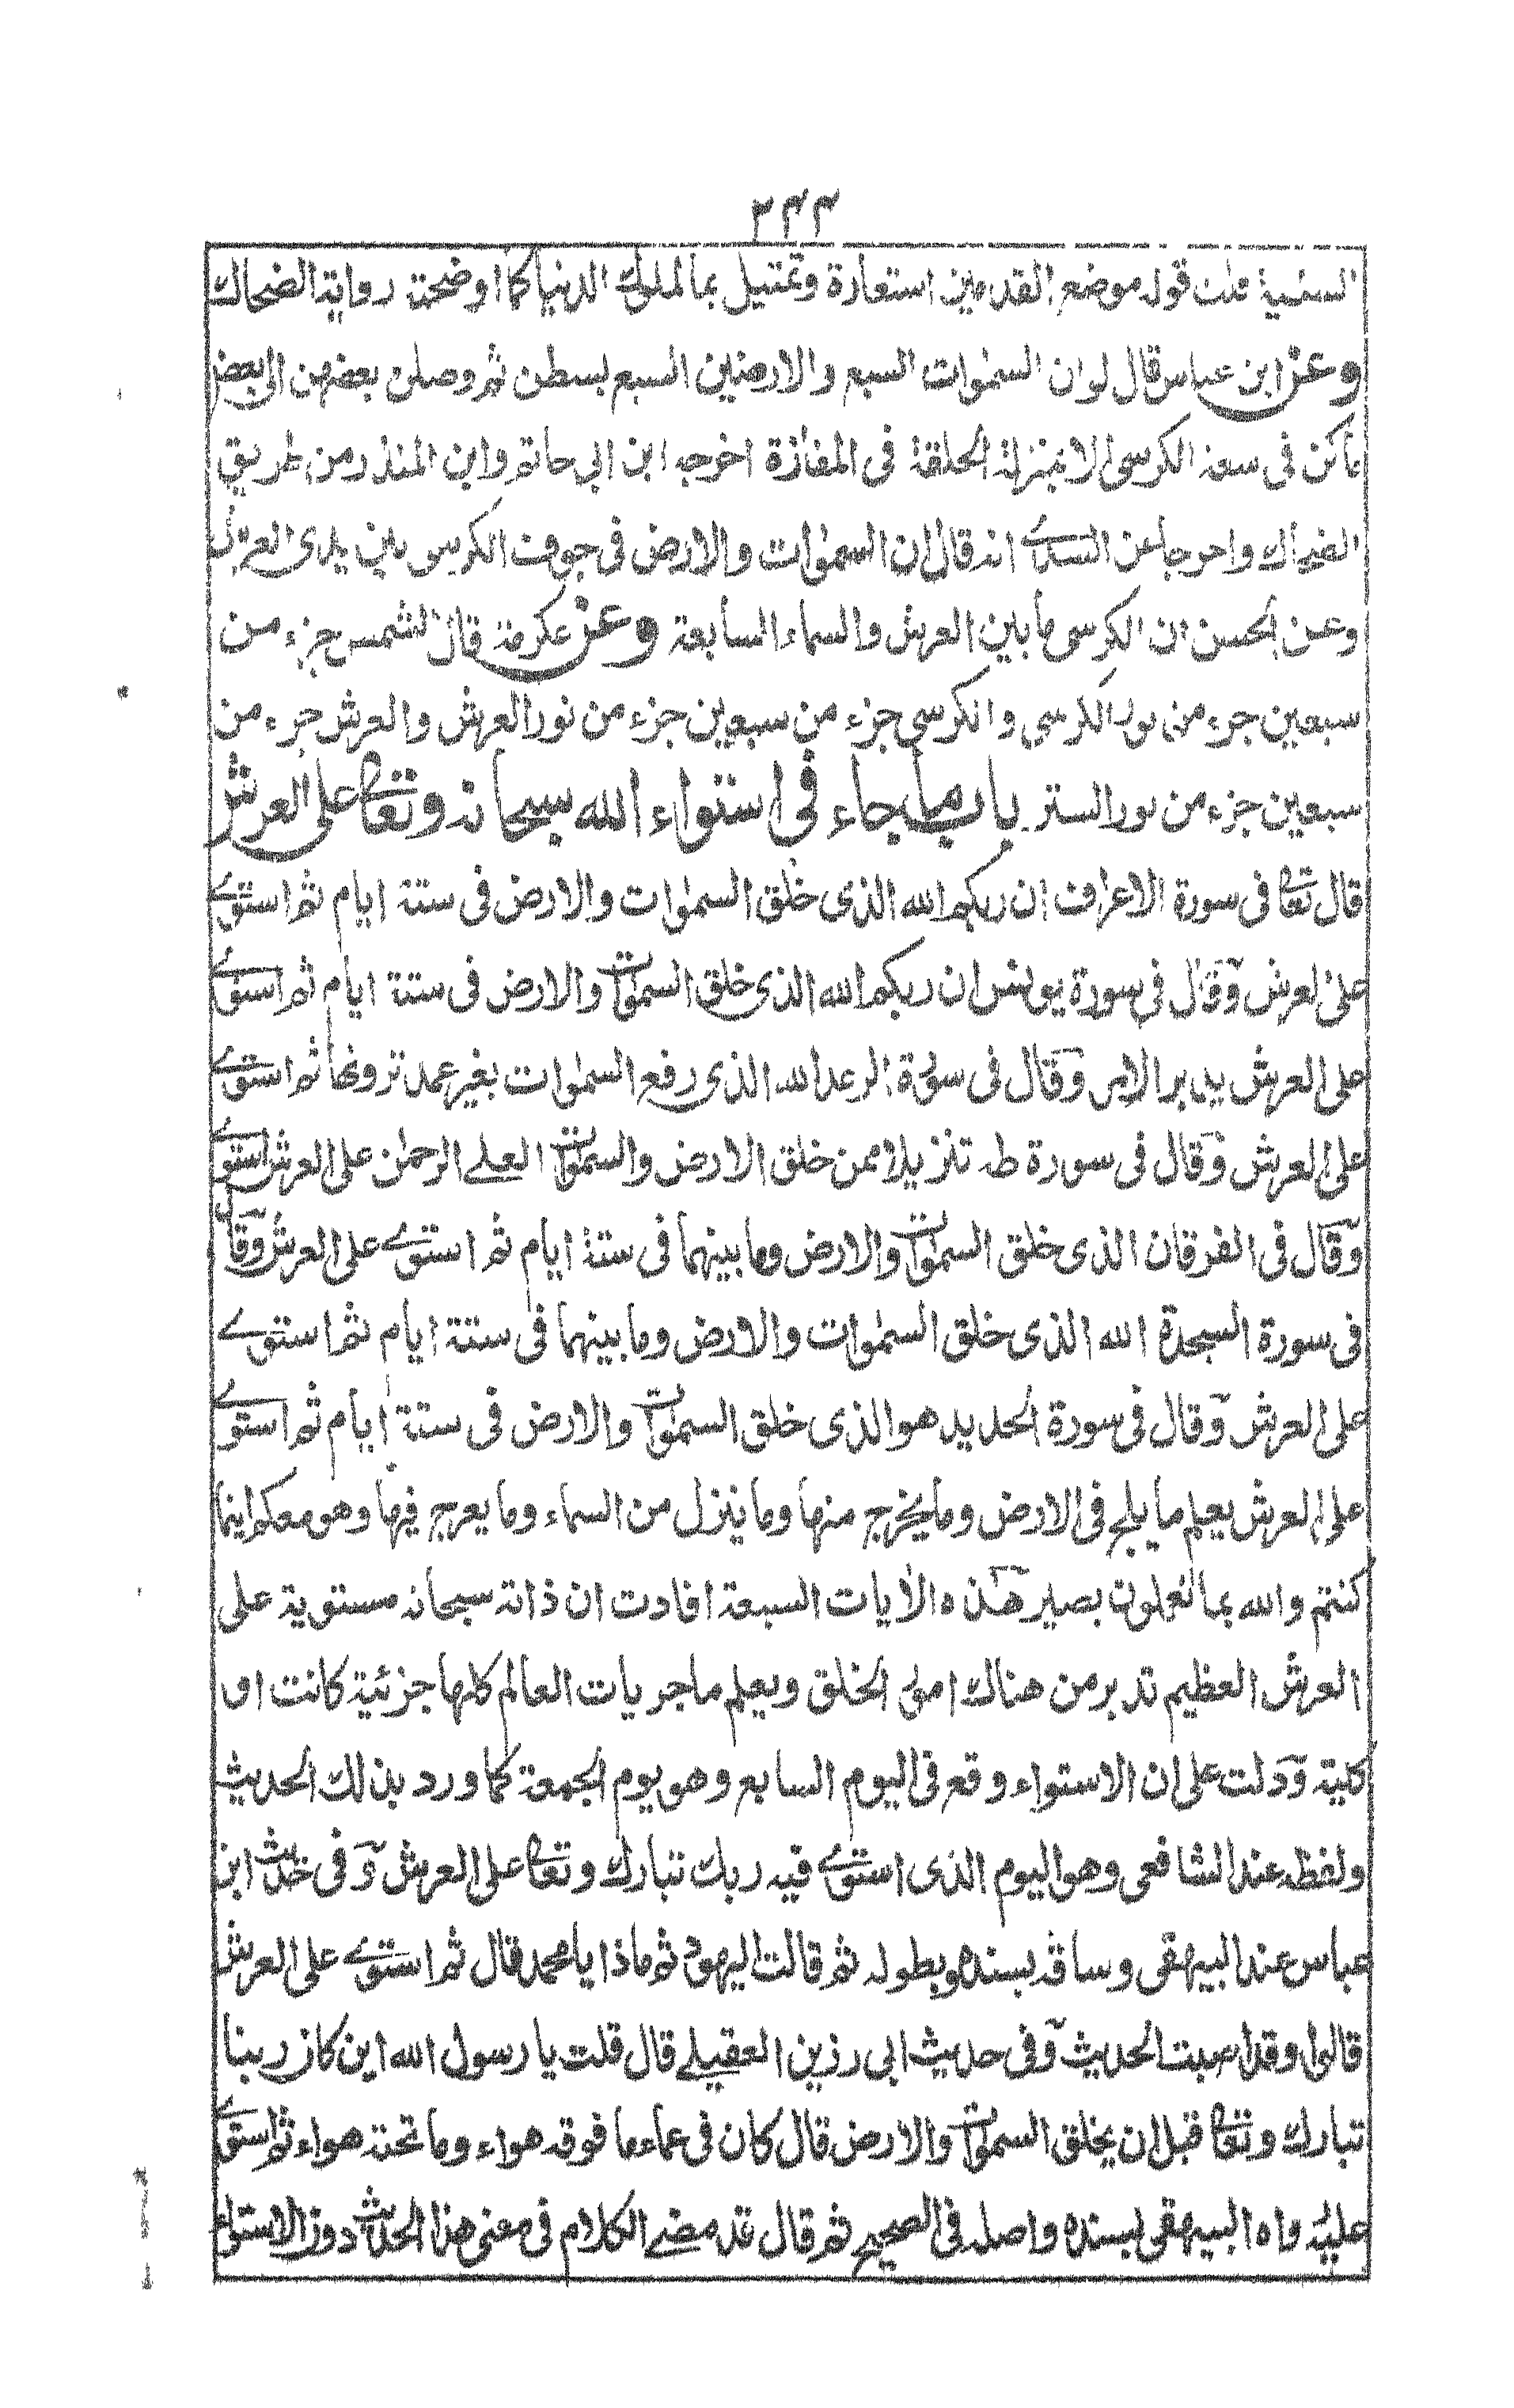 ٢٣٣
السنية قلت قوله موضع القدمين استعارة وتمثيل بما لملوك الدنيا كما اوضحته رواية الضحاك
وعن ابن عباس قال لو ان السمٰوات السبع والارضين السبع بسطن ثم وصلن بعضهن الى بعض
ما كن فى سعة الكرسى الا بمنزلة الحلقة فى المفازة اخرجه ابن ابي حاتم وابن المنذر من طريق
الضحاك واخرجا عن السدے انه قال ان السمٰوات والارض فى جوف الكرسي بين يدى العرش
وعن الحسن ان الكرسى ما بين العرش والسماء السابعة وعن عكرمة قال الشمس جزء من
سبعين جزء من نور الكرسى والكرسي جزء من سبعين جزء من نور العرش والعرش جزء من
سبعين جزء من نور الستر باب ما جاء فى استواء الله سبحانه وتعالى على العرش
قال تعالى فى سورة الاعراف ان ربكم الله الذى خلق السمٰوات والارض فى ستة ايام ثم استوے
على العرش وَقال فى سورة يونس ان ربكم الله الذى خلق السمٰوات والارض فى ستة ايام ثم استوے
على العرش يدبر الامر وَقال فى سورة الرعد الله الذى رفع السمٰوات بغير عمد ترونها ثم استوے
على العرش وَقال فى سورة طه تنزيلا ممن خلق الارض والسمٰوات العلے الرحمٰن على العرش استوے
وَقال فى الفرقان الذى خلق السمٰوات والارض وما بينهما فى ستة ايام ثم استوے على العرش وَقال
فى سورة السجدة الله الذى خلق السمٰوات والارض وما بينهما فى ستة ايام ثم استوے
على العرش وَقال فى سورة الحديد هو الذى خلق السمٰوات والارض فى ستة ايام ثم استوے
على العرش يعلم ما يلج فى الارض وما يخرج منها وما ينزل من السماء وما يعرج فيها وهو معكم اينما
كنتم والله بما تعملون بصير هٰذه الاٰيات السبعة افادت ان ذاته سبحانه مستوية على
العرش العظيم تدبر من هناك امور الخلق ويعلم ماجريات العالم كلها جزئية كانت او
كلية وَدلت على ان الاستواء وقع فى اليوم السابع وهو يوم الجمعة كما ورد بذلك الحديث
ولفظه عند الشافعى وهو اليوم الذى استوے فيه ربك تبارك وتعالى على العرش وَفى حديث ابن
عباس عند البيهقى وساقه بسنده وبطوله ثم قالت اليهود ثم ماذا يا محمد قال ثم استوے على العرش
قالوا وقد اصبت الحديث وَفى حديث ابى رزين العقيلے قال قلت يا رسول الله اين كان ربنا
تبارك وتعالى قبل ان يخلق السمٰوات والارض قال كان فى عماء ما فوقه هواء وما تحته هواء ثم استوے
عليه رواه البيهقى بسنده واصله فى الصحيح ثم قال قد مضے الكلام فى معنى هذا الحديث دون الاستواء